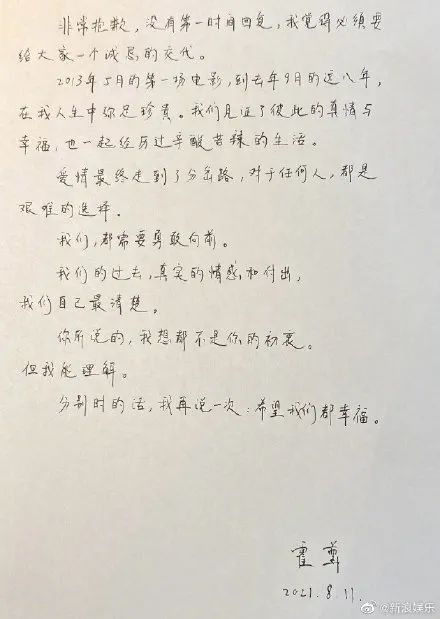 非常抱歉，没有第一时间回复，我觉得必须要
给大家一个诚恳的交代。
2013年5月的第一场电影，到去年9月的这八年，
在我人生中弥足珍贵。我们见证了彼此的真情与
幸福，也一起经历过辛酸苦辣的生活。
爱情最终走到了分岔路，对于任何人，都是
艰难的选择。
我们，都需要勇敢向前。
我们的过去，真实的情感和付出，
我们自己最清楚。
你所说的，我想都不是你的初衷。
但我能理解。
分别时的话，我再说一次：希望我们都幸福。
霍尊
2021.8.11.
@新浪娱乐